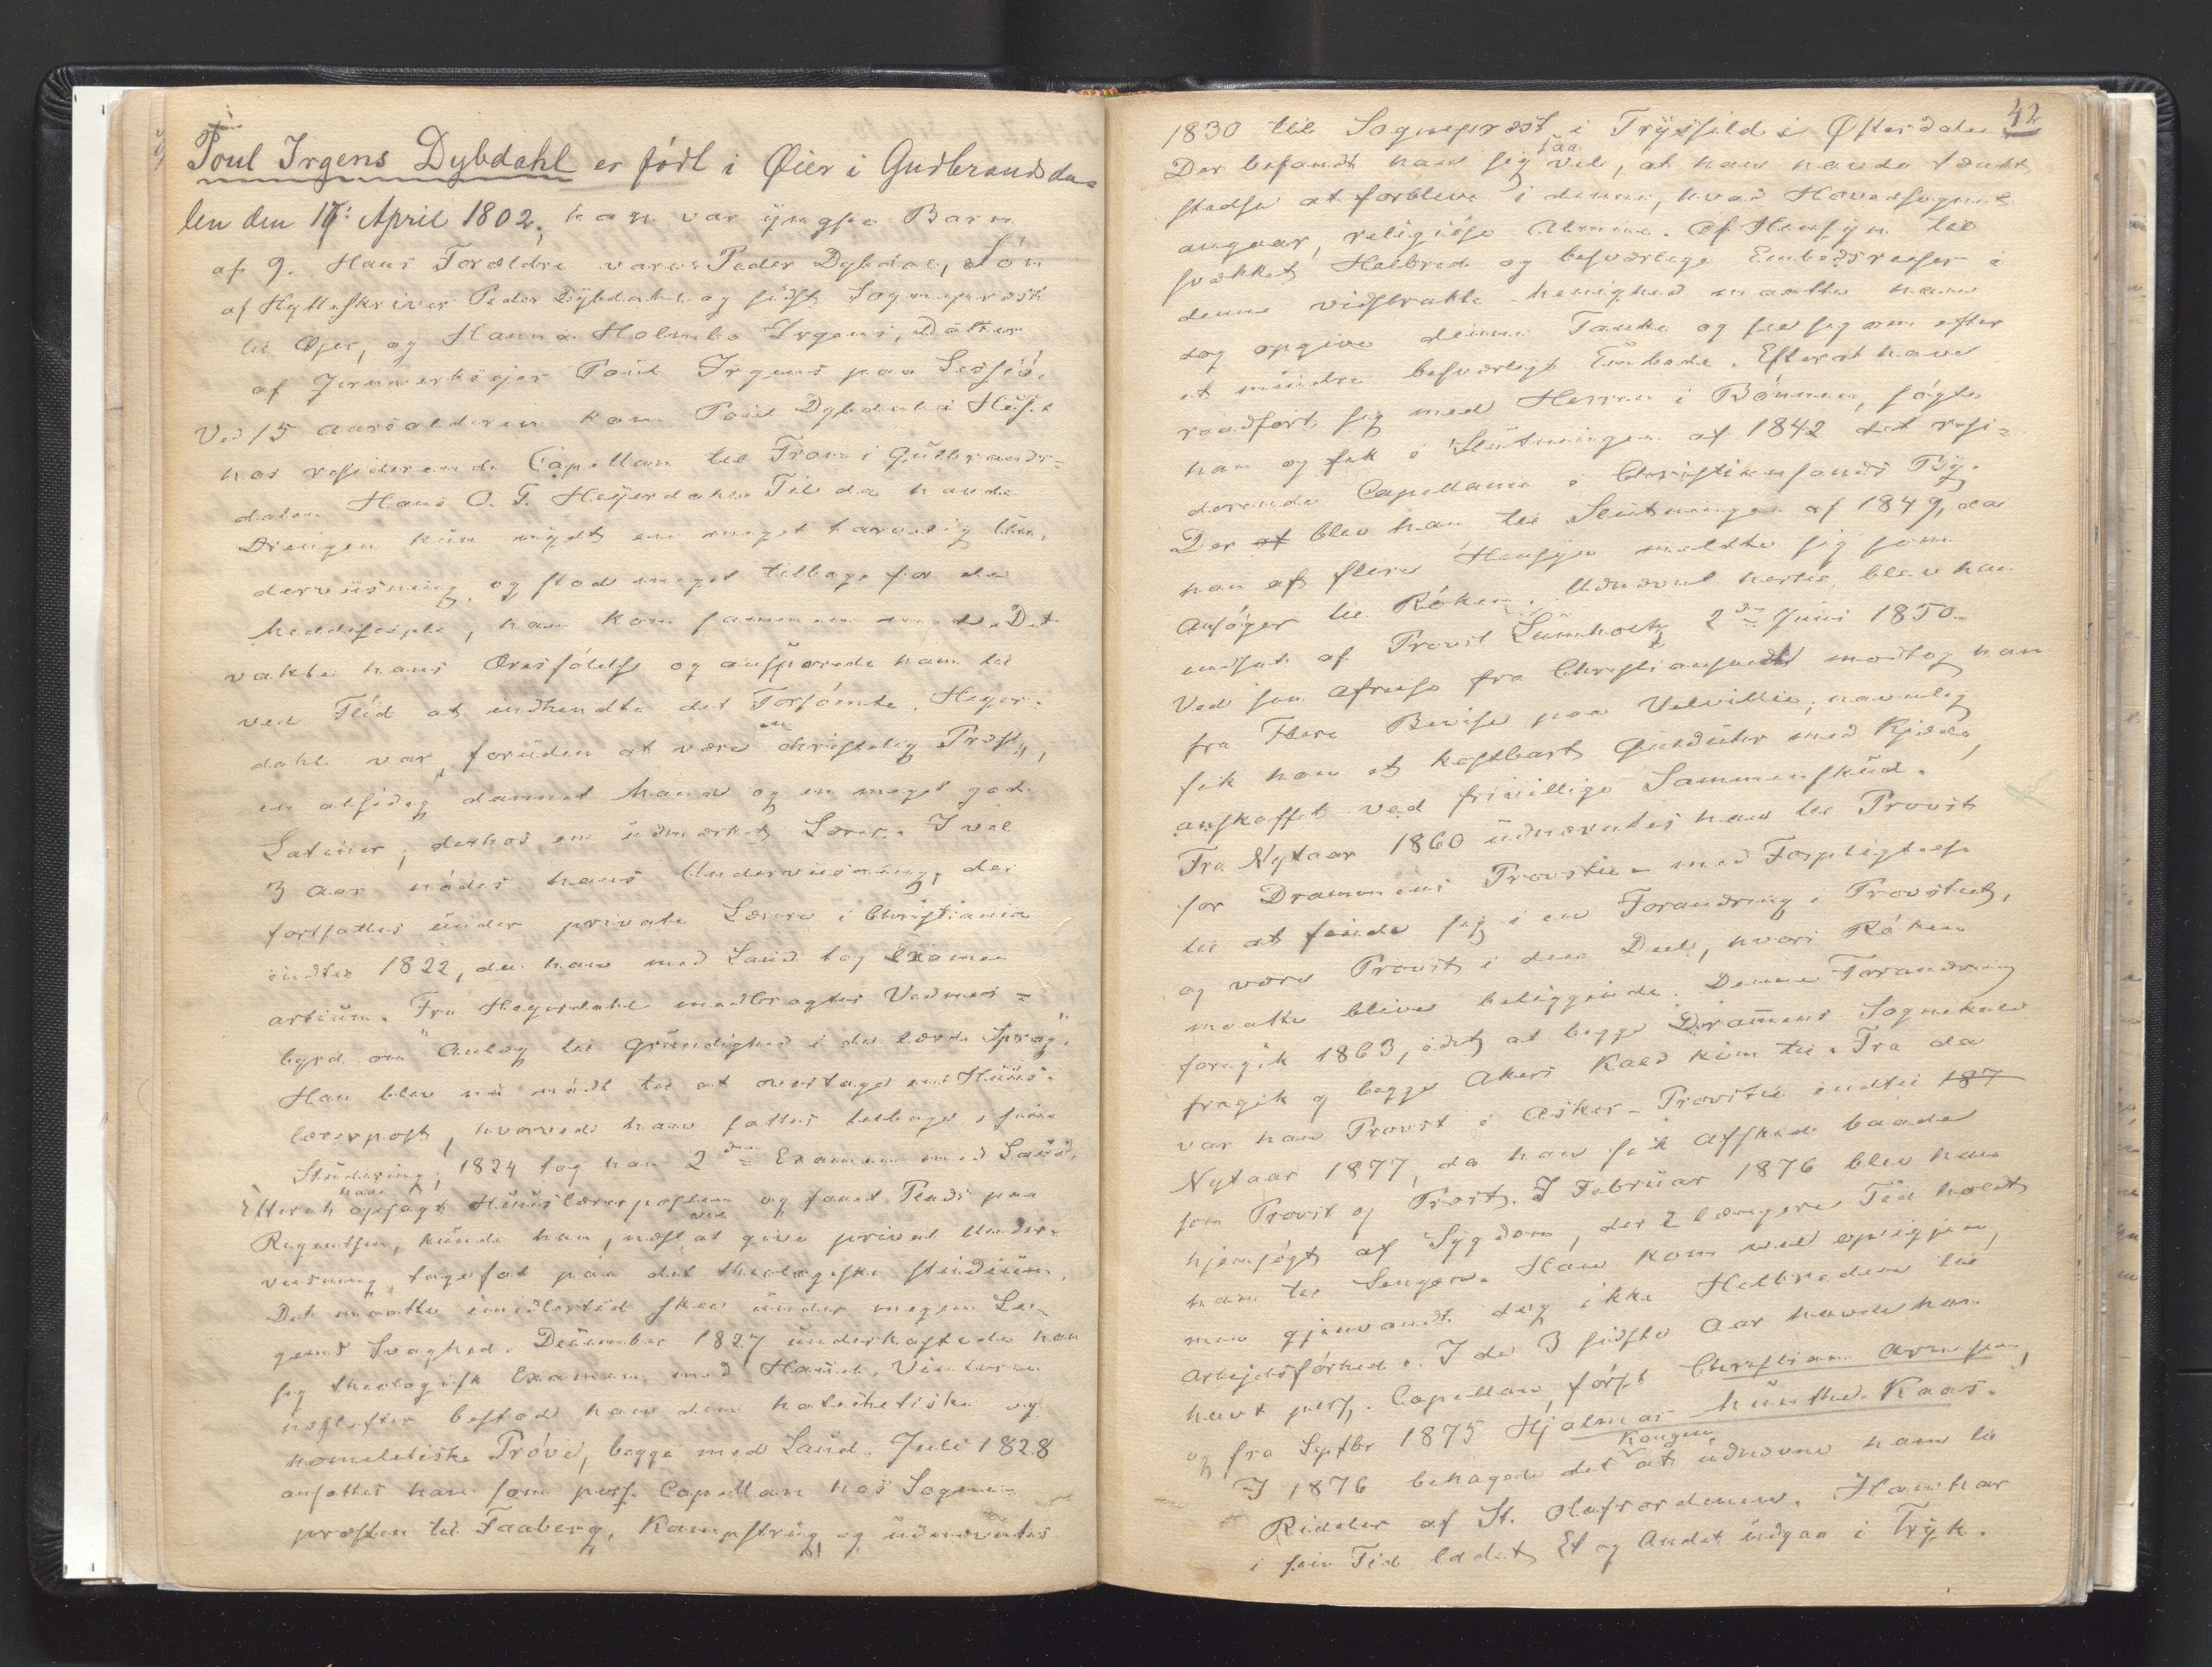 Poul Irgens Dybdahl er født i Øier i Gudbrandsda-
len den 17: April 1802; han var yngste Barn
af 9. Hans Forældre vare: Peder Dybdal, Søn
af Hytteskriver Peder Dybdahl og sidst Sognepræst
til Øjer, og Hanna Holmbo Irgens, Datter
af Jernverksejer Poul Irgens paa Lessiø.
Ved 15 Aarsalderen kom Poul Dybdahl i Huset
hos residerende Capellan til Fron i Gulbrands-
dalen Hans O. F. Heyerdahl. Til da havde
Drengen kun nydt en meget tarvelig Un-
derviisning og stod meget tilbage for de
Meddisciple, han kom sammen med. Det
vakte hans Æresfølelse og ansporede ham til
ved Flid at indhendte det Forsømte. Heyer-
dahl var, foruden at være en christelig Præst,
en alsidig dannet Mand og en meget god
Latiner, derhos en udmærket Lærer. I vel
3 Aar nødes hans Underviisning, der
fortsattes under private Lærere i Christiania
indtil 1822, da han med Laud tog Examen
artium. Fra Heyerdahl medbragtes Vidnes-
byrd om "Anlæg til Grundighed i de lærde Sprog."
Han blev nu nødt til at overtage en Huus-
lærerpost, hvorved han sattes tilbage i sine
Studering; 1824 tog han 2den Examen med Laud.
Efterat have opsagt Huuslærerposten og faaet Plads paa
Regentsen, kunde han, næst ved at give privat Under-
viisning, tage fat paa det theologiske Studium.
Det maatte imidlertid skee under megen Le-
gems Svaghed. December 1827 underkastede han
sig theologisk Examen med Haud. Vinteren
næstefter bestod han den katechetiske og
homiletiske Prøve, begge med Laud. Juli 1828
ansattes han som pers. Capellan hos Sogne-
præsten til Faaberg, Kampstrup, og udnævntes
42
1830 til Sognepræst i Trysild i Østerdalen.
Der befandt han sig saa vel, at han havde tænkt
stedse at forblive i denne, hvad Hovedsognet
angaar, religiøse Almue. Af Hensyn til
svækket Helbred og besværlige Embedsreiser i
denne vidstrakte Menighed maatte han
dog opgive denne Tanke og see sig om efter
et mindre besværligt Embede. Efterat have
raadført sig med Herren i Bønnen, søgte
han og fik i Slutningen af 1842 det resi-
derende Capellanie i Christiansands By.
Der blev han til Slutningen af 1849, da
han af flere Hensyn meldte sig som
Ansøger til Røken. Udnævnt hertil blev han
indsat af Provst Lumholtz 2den Juni 1850.
Ved sin Afreise fra Christiansand modtog han
fra Flere Bevise paa Velvillie, navnlig
fik han et kostbart Guldúhr med Kjæde,
anskaffet ved frivillige Sammenskud.
Fra Nytaar 1860 udnævntes han til Provst
for Drammens Provstie - med Forpligtelse
til at finde sig i en Forandring i Provstiet,
og være Provst i den Deel, hvori Røken
maatte blive beliggende. Denne Forandring
foregik 1863, idet at begge Drammens Sognekald
fragik og begge Akers Kald kom til. Fra da
var han Provst i Asker-Provstie indtil 187
Nytaar 1877, da han fik Afsked baade
som Provst og Præst. I Februar 1876 blev han
hjemsøgt af Sygdom, der i længere Tid holdt
ham til Sengen. Han kom vel op igjen,
men gjenvandt dog ikke Helbreden til
Arbejdsførhed. I de 3 sidste Aar havde han
havt pers. Capellan, først Christian Arnesen,
og fra Septbr 1875 Hjalmar Munthe-Kaas.
I 1876 behagede det Kongen at udnævne ham til
Ridder af St. Olafsordenen. Han har
i sin Tid ladet Et og Andet udgaa i Tryk.